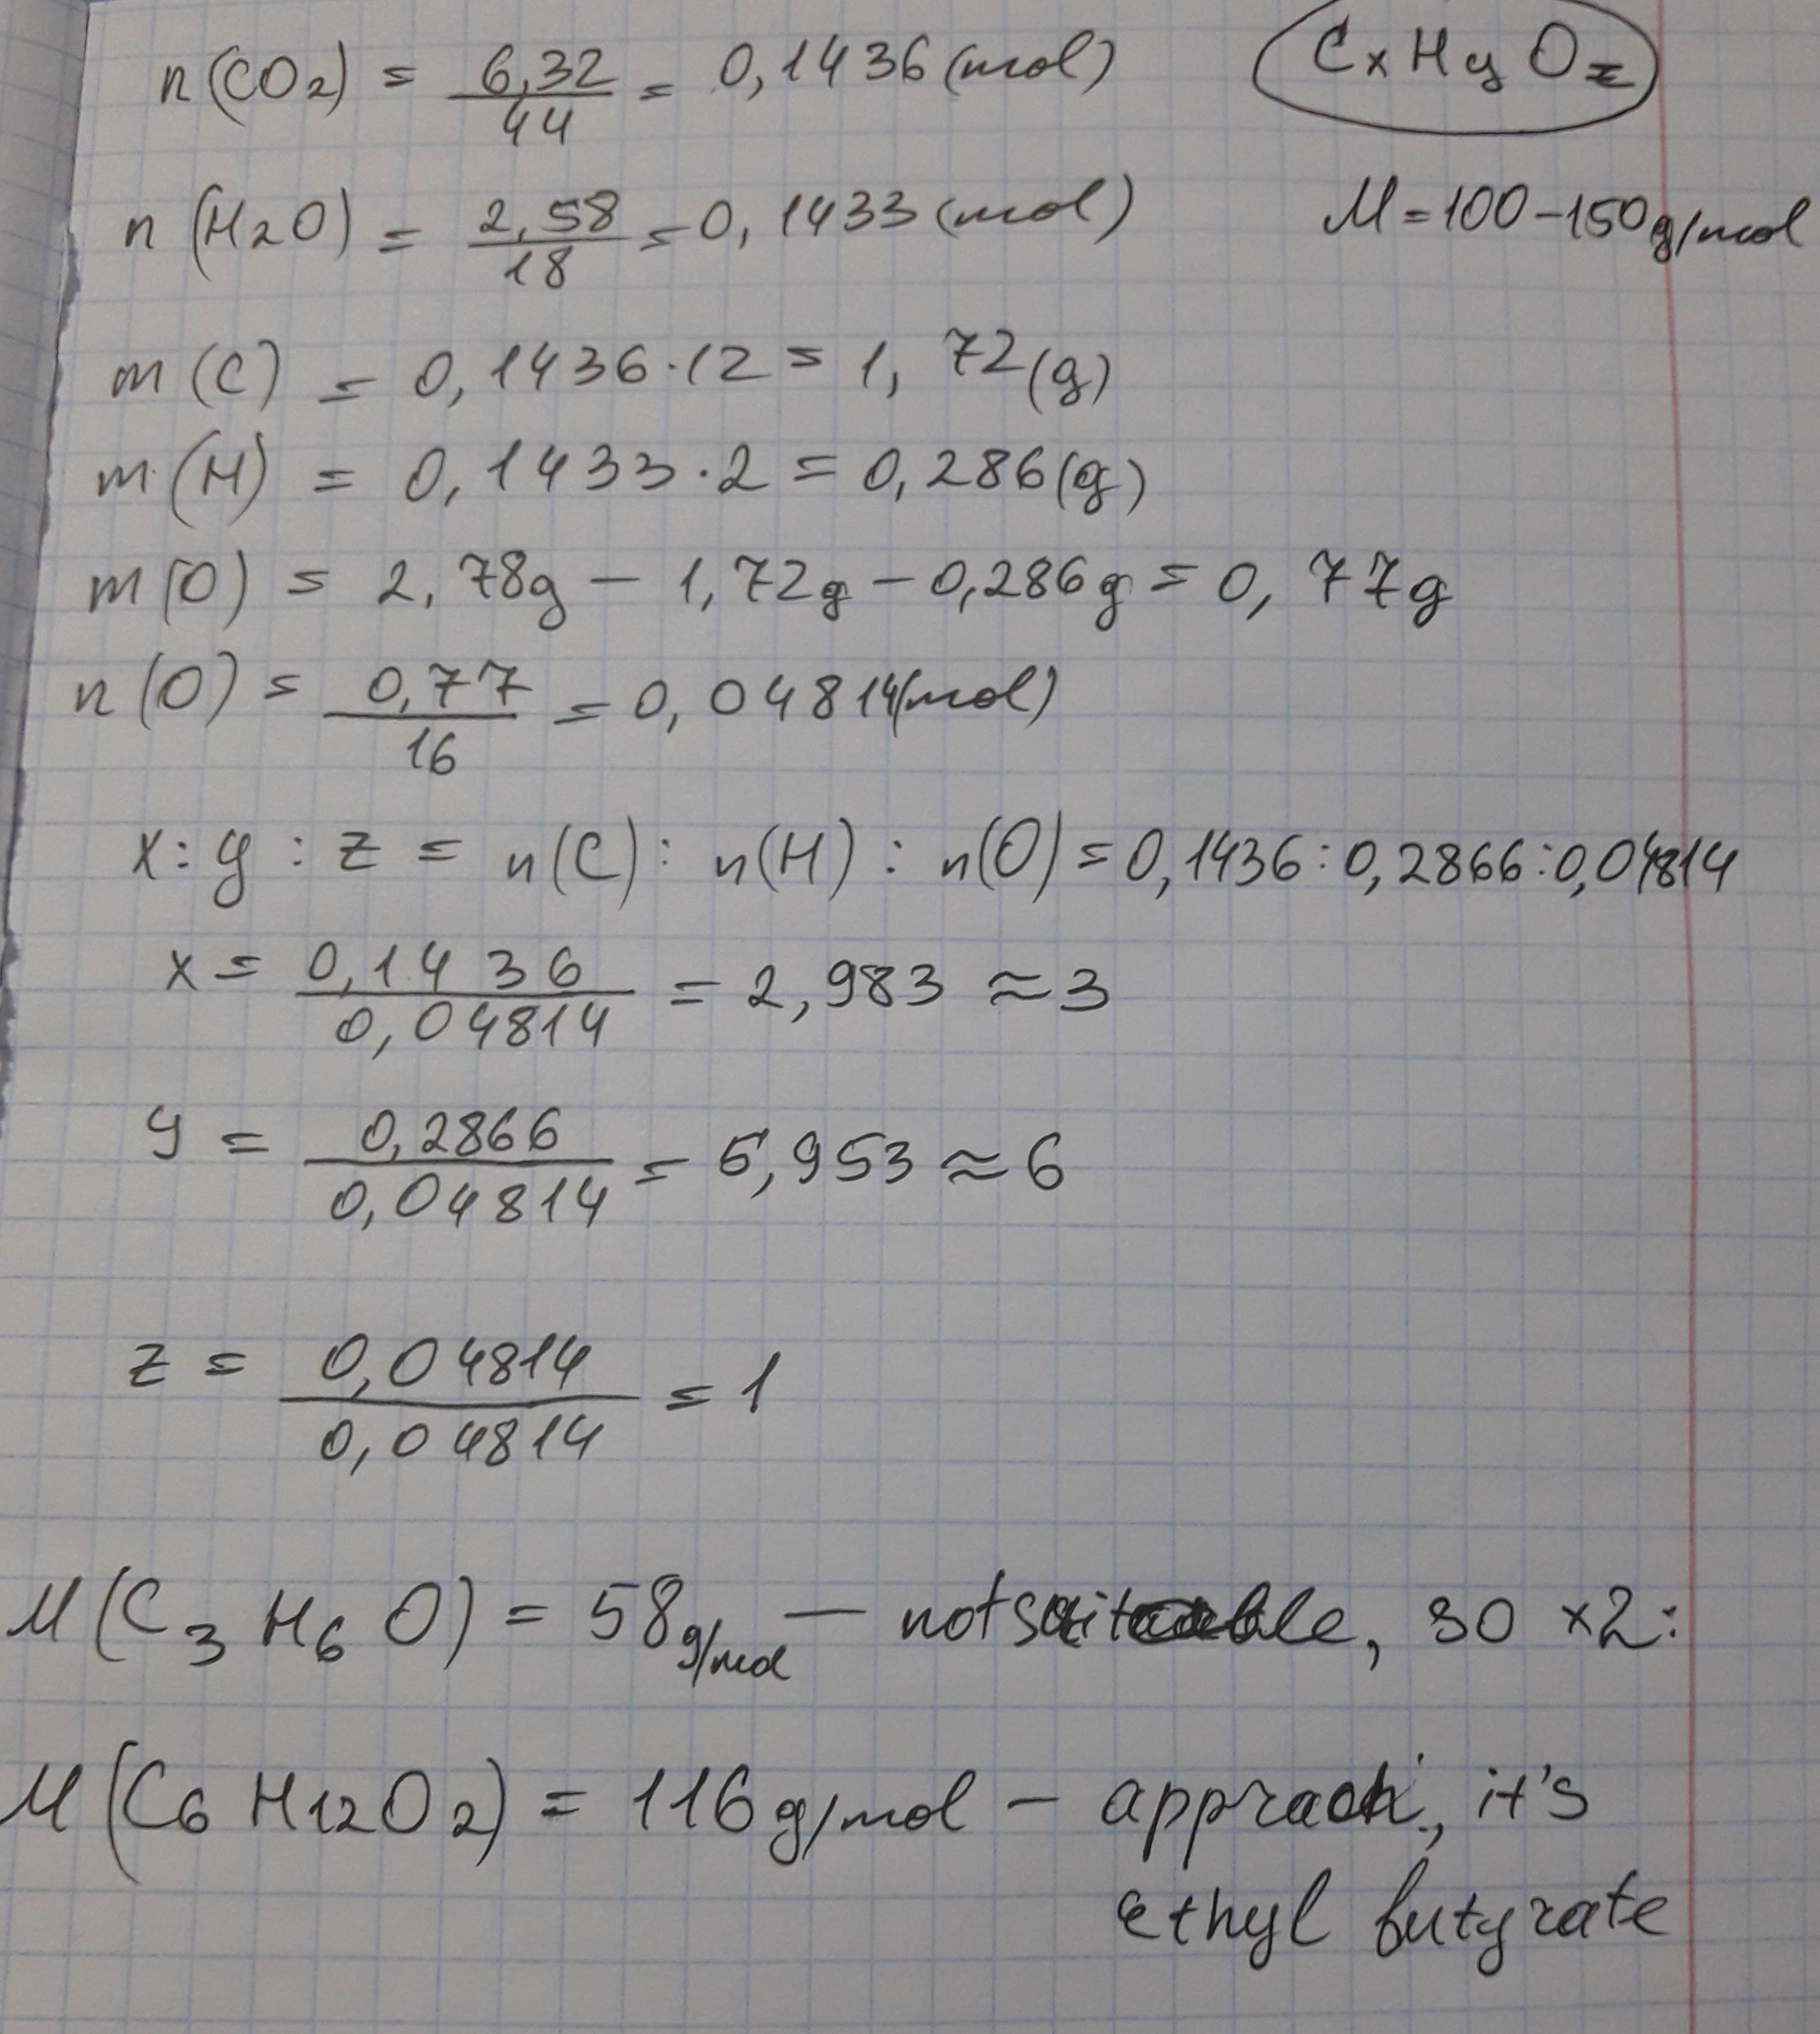 n(CO2) = 6,32/44 = 0,1436 (mol)
CxHyOz
n(H2O) = 2,58/18 = 0,1433 (mol)
M = 100-150g/mol
m(C) = 0,1436·12 = 1,72(g)
m(H) = 0,1433·2 = 0,286(g)
m(O) = 2,78g - 1,72g - 0,286g = 0,77g
n(O) = 0,77/16 = 0,04814(mol)
x:y:z = n(C): n(H): n(O) = 0,1436:0,2866:0,04814
x = 0,1436/0,04814 = 2,983 ≈ 3
y = 0,2866/0,04814 = 5,953 ≈ 6
z = 0,04814/0,04814 = 1
M(C3H6O) = 58g/mol - not suitable, so x2:
M(C6H12O2) = 116g/mol - it's
ethyl butyrate